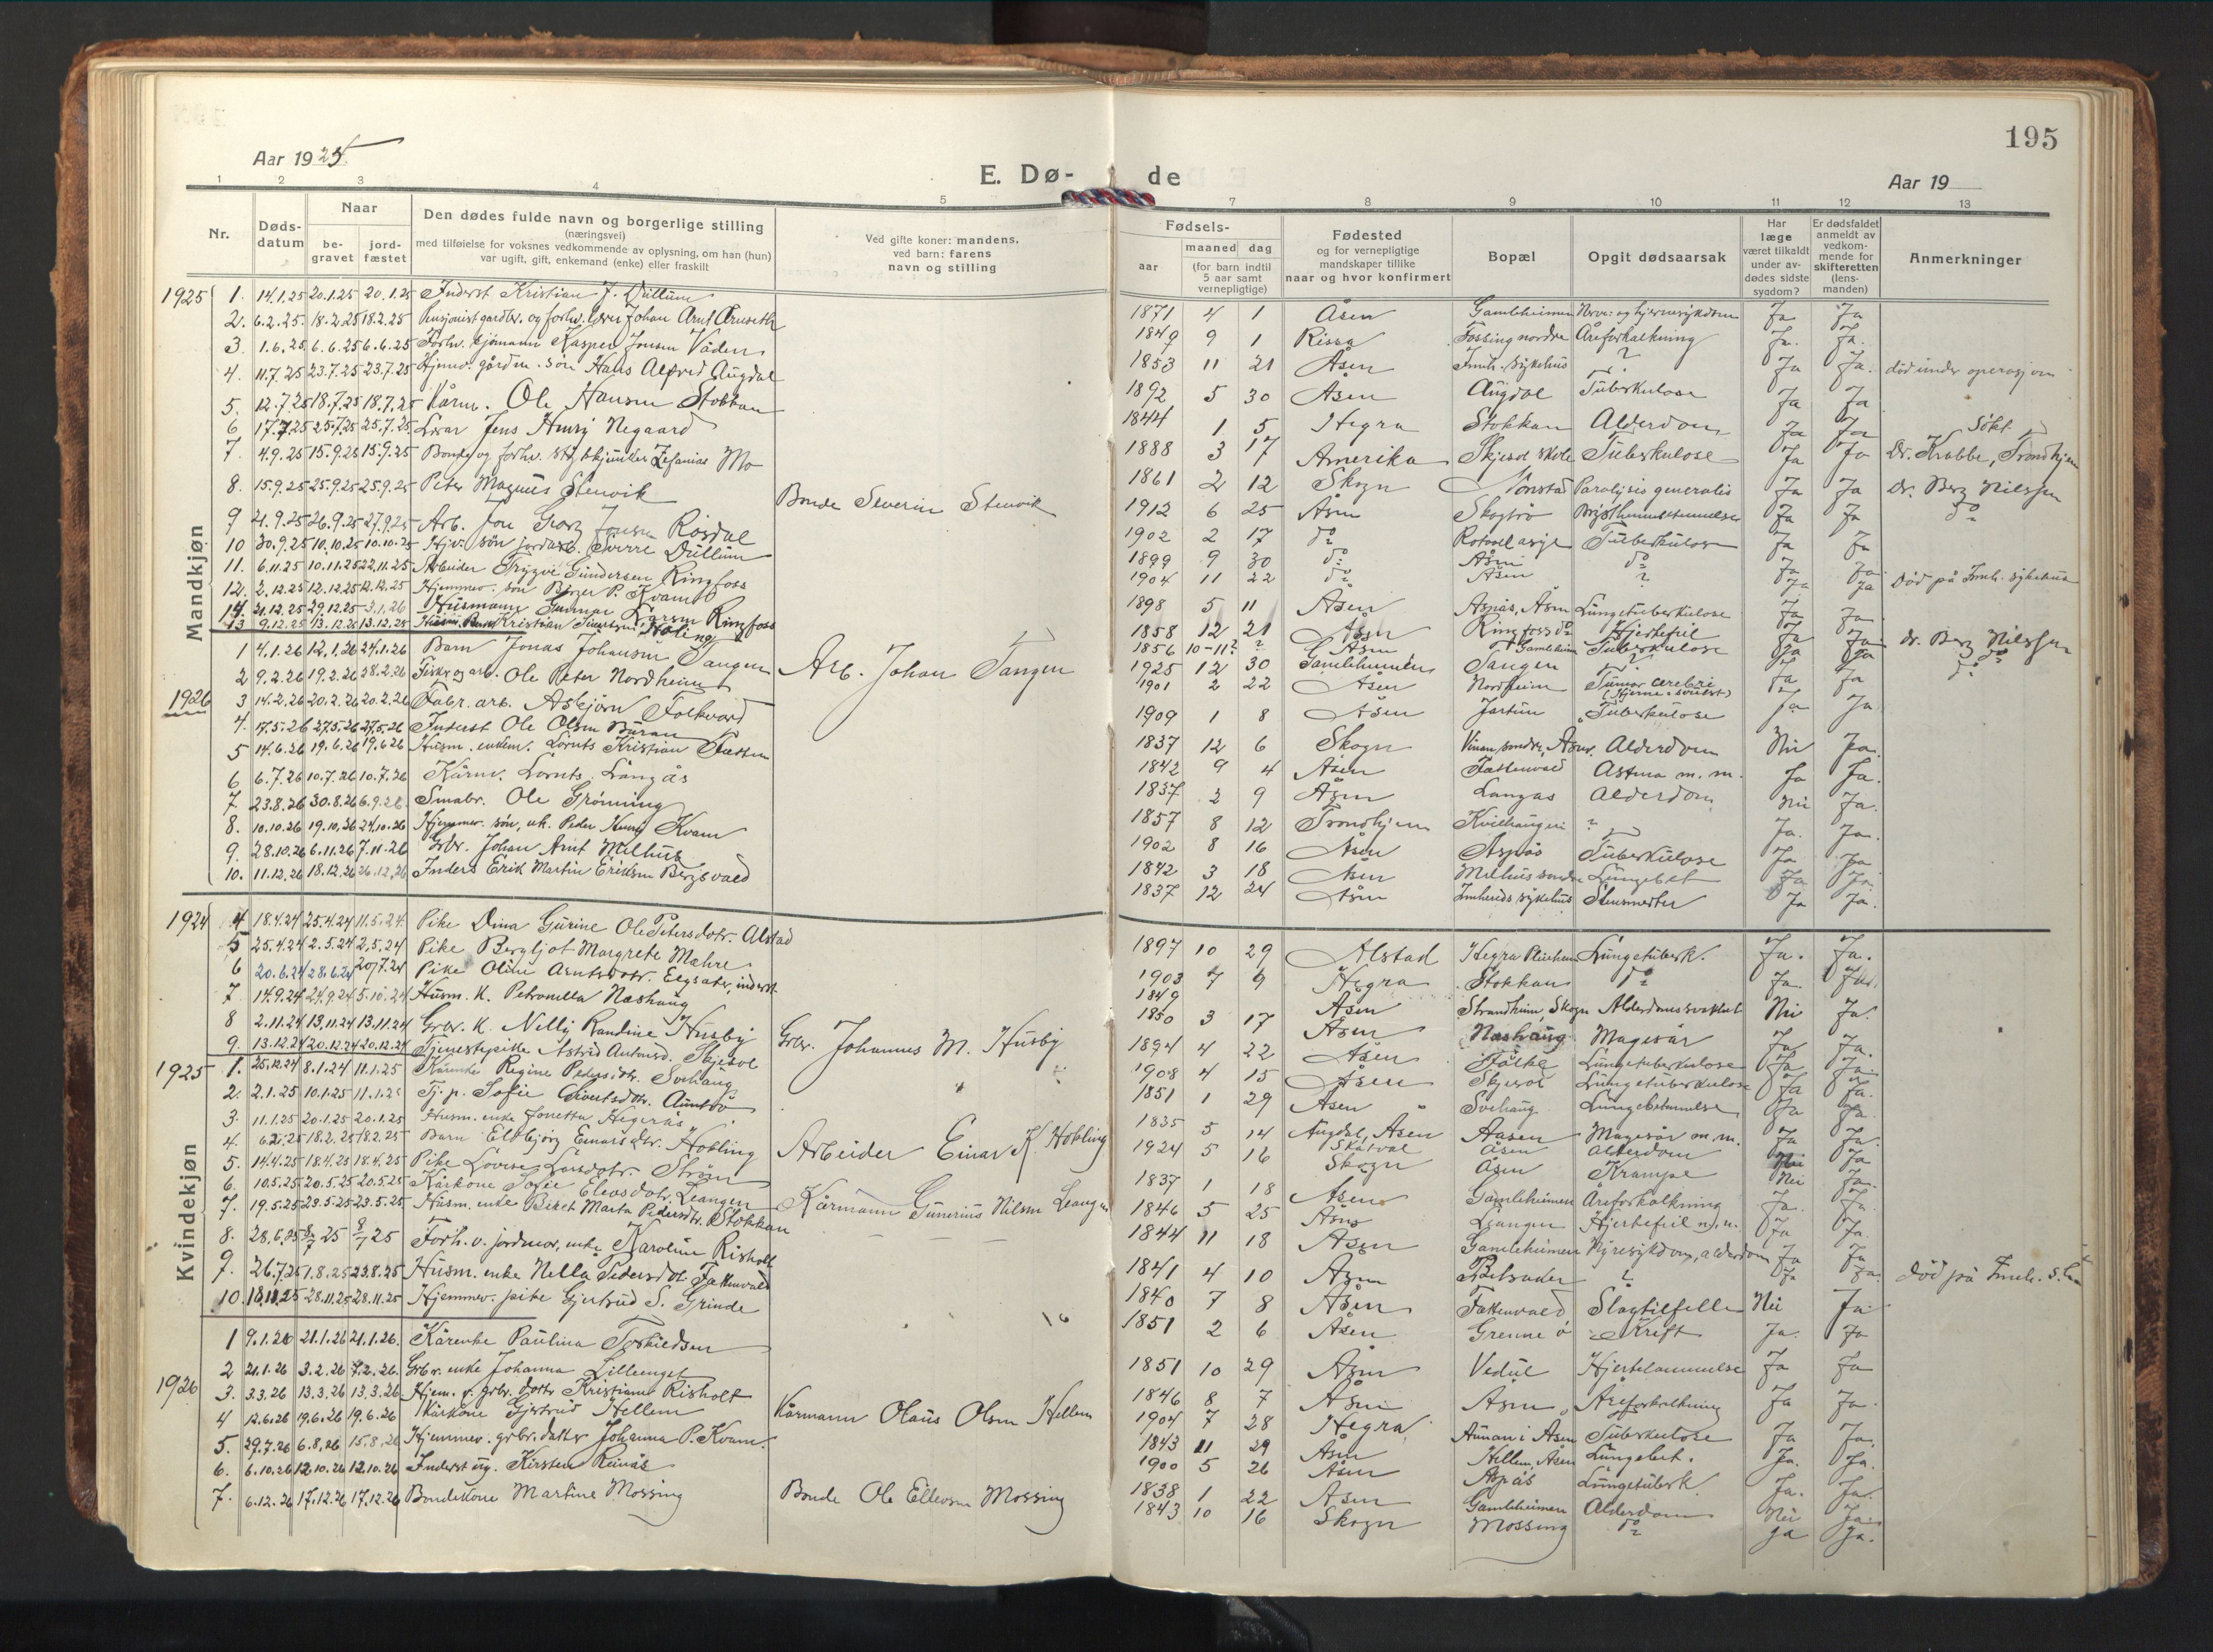 195
Aar 1925
E. Dø-
de
Aar 19
1 2 3 4 5 7 8 9 10 11 12 13
Nr.
Døds-
datum
Naar
be-
gravet
jord-
fæstet
Den dødes fulde navn og borgerlige stilling
(næringsvei)
med tilføielse for voksnes vedkommende av oplysning, om han (hun)
var ugift, gift, enkemand (enke) eller fraskilt
Ved gifte koner: mandens,
ved barn: farens
navn og stilling
Fødsels-
aar
maaned dag
(for barn indtil
5 aar samt
vernepligtige)
Fødested
og for vernepligtige
mandskaper tillike
naar og hvor konfirmert
Bopæl
Opgit dødsaarsak
Har
læge
været tilkaldt
under av-
dødes sidste
sygdom?
Er dødsfaldet
anmeldt av
vedkom-
mende for
skifteretten
(lens-
manden)
Anmerkninger
Mandkjøn
1925 1. 14.1.25 20.1.25 20.1.25 Inderst Kristian J. Dullum 1871 4 1 Åsen Gamleheimen Nerve- og hjernesykdom Ja Ja
2. 6.2.25. 18.2.25 18.2.25 Pensjonist gardbr. og forhv. Johan Arnt 1849 9 1 Rissa Fossing nordre Åreforkalkning Ja. Ja.
3. 1.6.25 6.6.25 6.6.25 Forhv. sjømann Kasper Jonsen Våden 1853 11 21 Åsen Innh. sykehus ? Ja Ja. død under operasjon
4. 11.7.25 23.7.25 23.7.25 Hjemv. gårdm. søn Hans Alfred Augdal 1892 5 30 Åsen Augdal Tuberkulose Ja Ja
5. 12.7.25 18.7.25 18.7.25 Kårm. Ole Hansen Stokkan 1844 1 5 Hegra Stokkan Alderdom Ja Ja
6 17.7.25 25.7.25 25.7.25 Lærar Jens Henry Negaard 1888 3 17 Amerika Skjesol skole Tuberkulose Ja Ja Søkt Dr. Krabbe, Trondhjem
7. 4.9.25 15.9.25 15.9.25 Bonde og forhv. Zefanias Mo 1861 2 12 Skogn Vonstad Paralysis generalis Ja Ja dr. Berg Nilssen
8. 15.9.25 25.9.25 25.9.25 Peter Magnus Stenvik Bonde Severin Stenvik 1912 6 25 Åsen Ja Ja do
9 21.9.25 26.9.25 27.9.25 Arb. Jon Georg Jonsen Rosdal 1902 2 17 do Tuberkulose Ja Ja
10 30.9.25 10.10.25 10.10.25 Hjv. søn jordarb. Sverre Dullum 1899 9 30 do Åsen do Ja Ja
11. 6.11.25 10.11.25 22.11.25 Arbeider Trygve Gundersen Ringfoss 1904 11 22 do Åsen ? Ja Ja død på Innh. sykehus
12. 2.12.25 12.12.25 12.12.25 Hjemmev. søn Birger P. Kvam 1898 5 11 Åsen Aspås, Åsen Lungetuberkulose Ja Ja
14 21.12.25 29.12.25 3.1.26 Husmann Gunnar Larsen Ringfoss 1858 12 21 Åsen Ringfoss do Hjertefeil Ja Ja dr. Berg Nilssen
13 9.12.25 13.12.25 13.12.25 Kristian 1856 10-11? ? Åsen Gamleheim Tuberkulose Ja Ja do
1926
1 4.1.26 12.1.26 24.1.26 Barn Jonas Johansen Tangen Arb. Johan Tangen 1925 12 30 Gamleheimen Tangen ? Ja Ja
2 9.2.26 19.2.26 28.2.26 Fisker og arb. Ole Peter Nordheim 1901 2 22 Åsen Nordheim Tumor cerebri Ja Ja
3 14.2.26 20.2.26 20.2.26 Fabr. arb. Asbjørn Folkvord 1909 1 8 Åsen Jartun Tuberkulose Ja Ja
4. 17.5.26 27.5.26 27.5.26 Inderst Ole Olsen Buran 1837 12 6 Skogn Vinan søndre, Åsen. Alderdom Nei Ja.
5 14.6.26 19.6.26 19.6.26 Husm. enkem. Lornts Kristian 1842 9 4 Åsen Astma m.m. Ja Ja.
6 6.7.26 10.7.26 10.7.26 Kårm. Lornts Langås 1837 2 9 Åsen Langås Alderdom Nei Ja.
7. 23.8.26 30.8.26 6.9.26. Smabr. Ole Grønning 1857 8 12 Trondhjem Kvilhaugen ? Ja. Ja.
8. 10.10.26 19.10.26 24.10.26 Hjemmev. søn, uk. Peder Kvam 1902 8 16 Åsen Aspås Tuberkulose Ja Ja
9. 28.10.26 6.11.26 7.11.26 Grbr. Johan Arnt Milhus 1842 3 18 Åsen Milhus søndre Lungebet. Ja Ja.
10. 11.12.26 18.12.26 26.12.26 Inderst Erik Martin Eriksen Bergsvald 1837 12 24 Åsen Innhereds sykehus Stensmerter Ja Ja.
Kvindekjøn
1924 4 18.4.24 25.4.24 11.5.24 Pike Dina Gurine Ole Petersdotr. Alstad 1897 10 29 Alstad Hegra Pleiehem Lungetuberk. Ja. Ja.
5 25.4.24 2.5.24 2.5.24 Pike Bergljot Margrete Mahre 1903 7 9 Hegra Stokkan do Ja. Ja.
6 20.6.24 28.6.24 20.7.24 Pike Oline Arntsdotr. Elgsater, inderst 1849 Åsen Strandheim, Skogn Alderdomssvekket Nei Ja.
7. 14.9.24 24.9.24 5.10.24 Husm. k. Petronella Næshaug 1850 3 17 Åsen Næshaug Magesår Ja Ja.
8 2.11.24 13.11.24 13.11.24 Grbr. k. Nelly Randine Husby Grbr. Johannes M. Husby 1894 4 22 Åsen Lungetuberkulose Ja Ja.
9. 13.12.24 20.12.24 20.12.24 Tjenestepike Astrid Skjesol 1908 4 15 Åsen Skjesol Lungetuberkulose Ja Ja.
1925 1. 25.12.24 8.1.24 11.1.25 Kårenke Regine Pedersdtr. Svehaug 1851 1 29 Åsen Svehaug Lungebetennelse Ja Ja
2. 2.1.25 10.1.25 11.1.25 Tj. p. Sofie Sivertsdtr. 1835 5 14 Augdal, Åsen Aasen Magesår m.m. Ja Ja.
3. 11.1.25 20.1.25 20.1.25 Husm. enke Jonetta Hegerås Skatval Åsen Alderdom Nei Ja
4. 18.2.25 18.2.25 Barn Eldbjørg Einarsdtr. Hobling Arbeider Einar K. Hobling 1924 5 16 Skogn Åsen Krampe Nei Ja.
5. 14.4.25 18.4.25 18.4.25 Pike Lovise Larsdotr. Strøm 1837 1 18 Åsen Gamleheimen Åreforkalkning Ja. Ja.
6. 10.5.25 20.5.25 20.5.25 Kårkone Sofie Elevsdotr. Leangen Kårmann Gunerius Nilsen Leangen 1846 5 25 Åsen Leangen Hjertefeil Ja Ja.
7. 19.5.25 23.5.25 23.5.25 Husm. enke Beret Marta Pedersdtr. Stokkan 1844 11 18 Åsen Gamleheimen Nyresykdom, alderdom Ja Ja
8. 28.6.25 25 25 Forh.v. jordmor, enke Karoline Risholt 1841 4 10 Åsen ? Ja Ja. død på Innh. s.
9. 26.7.25 1.8.25 23.8.25 Husm. enke Nella Pedersdtr. Fættenvald 1840 7 8 Åsen Fættenvald Slagtilfelle Nei Ja
10. 18.11.25 28.11.25 28.11.25 Hjemmev. pike Gjertrud S. Grinde 1851 2 6 Åsen Kreft Ja. Ja
1926
1 9.1.26 21.1.26 21.1.26. Kårenke Paulina Torkildsen 1851 10 29 Åsen Vedul Hjertelammelse Ja Ja
2 21.1.26 3.2.26 7.2.26. Grbr. enke Johanna Lillenget 1846 8 7 Åsen Åsen Åreforkalkning Ja Ja.
3. 3.3.26 13.3.26 13.3.26 Hjem. v. grbr. dattr Kristiane Risholt 1904 7 28 Hegra Aunan i Åsen Tuberkulose Ja Ja
4 12.6.26 19.6.26 19.6.26 Kårkone Gjertrud Hellem Kårmann Olaus Olsen Hellem 1843 11 29 Åsen Hellem, Åsen Lungebet. Ja. Ja.
5. 29.7.26 6.8.26 15.8.26 Hjemmev. grbr. datter Johanna P. Kvam. 1900 5 26 Åsen Aspås Lungetuberk. Ja. Ja.
6. 6.10.26 12.10.26 12.10.26 Inderst ug. Kirsten Reinås 1838 1 22 Åsen Gamleheimen Alderdom Nei Ja.
7. 6.12.26 17.12.26 17.12.26 Bondekone Martine Mossing Bonde Ole Ellevsen Mossing 1843 10 16 Skogn Mossing do Ja Ja.